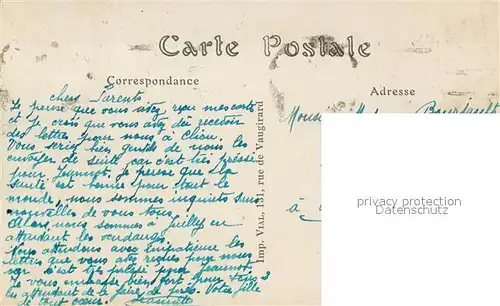 Carte Postale
Correspondance
Adresse
chers Parents
Je pense que vous avez reçu mes cartes
et je crois que vous avez dû recevoir
des lettres pour nous à Clion.
Vous seriez bien gentils de nous les
envoyer de suite car c'est très pressé
pour Jeannot. Je pense que la
santé est bonne pour tout le
monde, nous sommes inquiets sans
nouvelles de vous tous.
Alors nous sommes à en
attendant les vendanges.
Nous attendons avec impatience les
lettres que vous avez reçues pour nous
car c'est très pour Jeannot.
Je vous embrasse bien fort pour
en attendant de le faire de près. Votre fille
de tout cœur.
Imp. VIAL, 131, rue de Vaugirard
à
privacy protection
Datenschutz